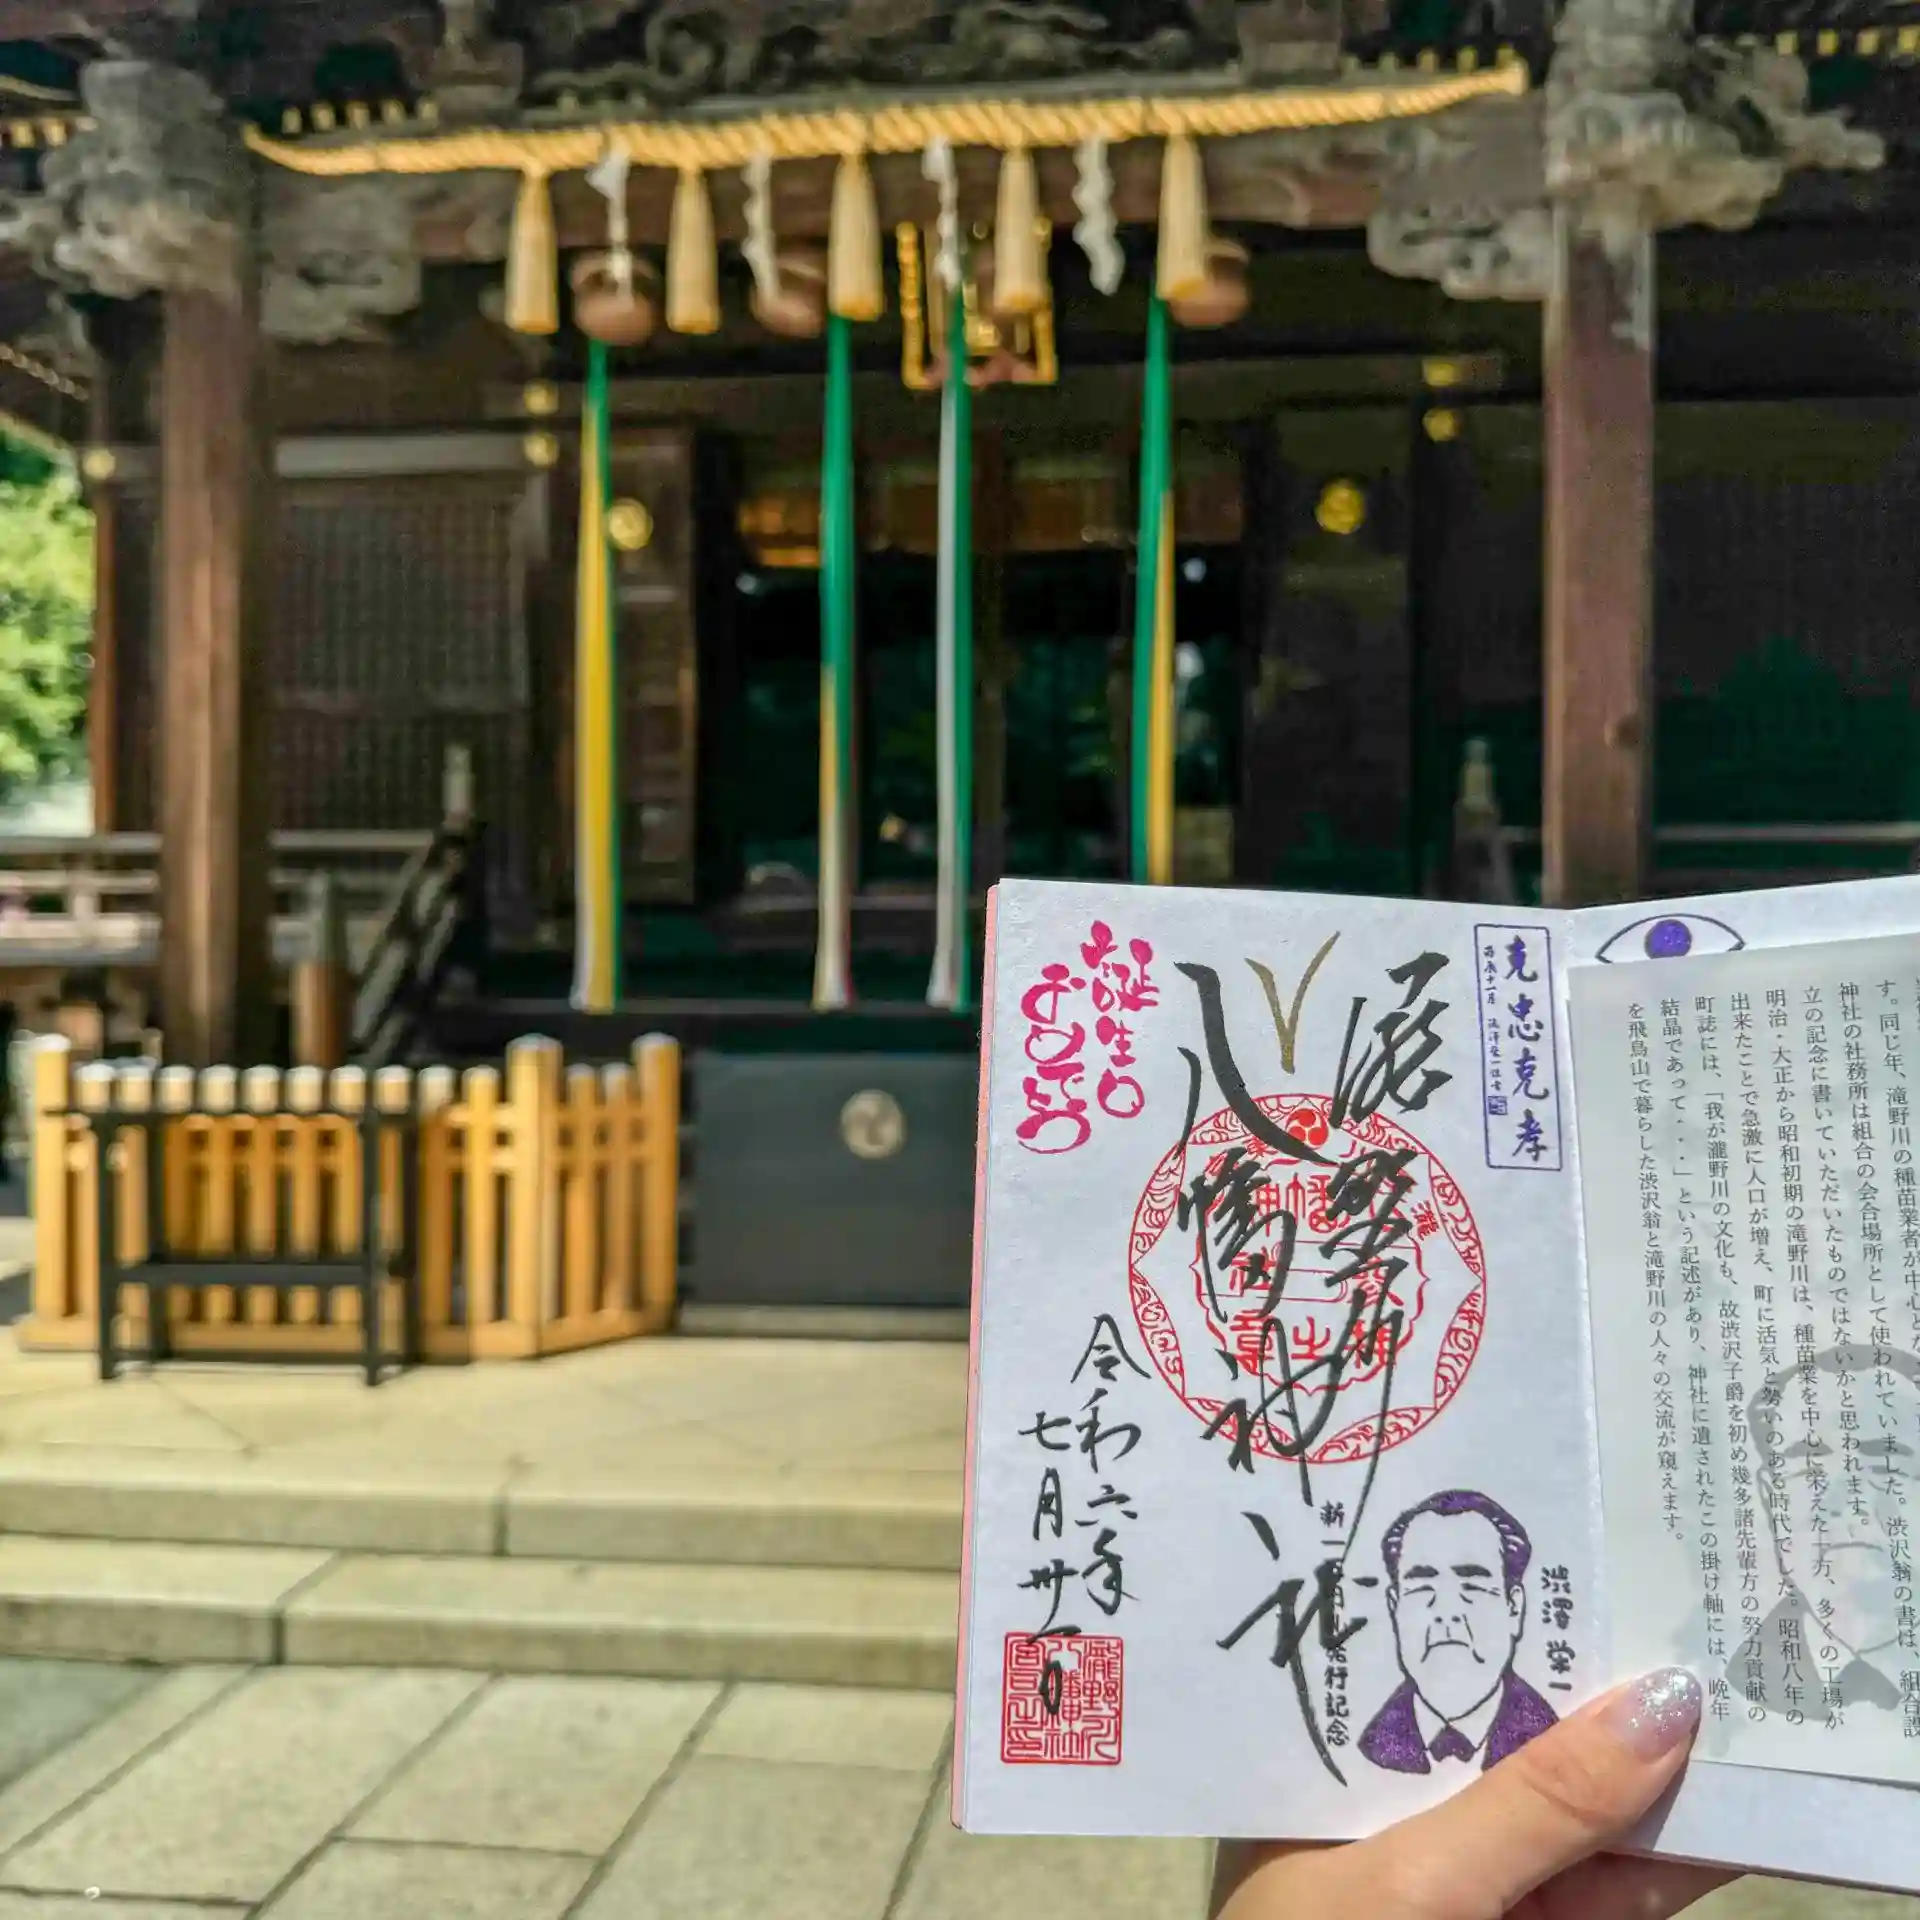 克忠克孝
丙辰十一月 渋澤榮一謹書
瀧野川
八幡神社
誕生日
おめでとう
令和六年
七月卅一日
新一万円札発行記念
渋澤栄一
瀧野川八幡神社宮司之印
す。同じ年、滝野川の種苗業者が中心とな
神社の社務所は組合の会合場所として使われていました。渋沢翁の書は、組合設
立の記念に書いていただいたものではないかと思われます。
明治・大正から昭和初期の滝野川は、種苗業を中心に栄えた一方、多くの工場が
出来たことで急激に人口が増え、町に活気と勢いのある時代でした。昭和八年の
町誌には、「我が瀧野川の文化も、故渋沢子爵を初め幾多諸先輩方の努力貢献の
結晶であって・・・」という記述があり、神社に遺されたこの掛け軸には、晩年
を飛鳥山で暮らした渋沢翁と滝野川の人々の交流が窺えます。